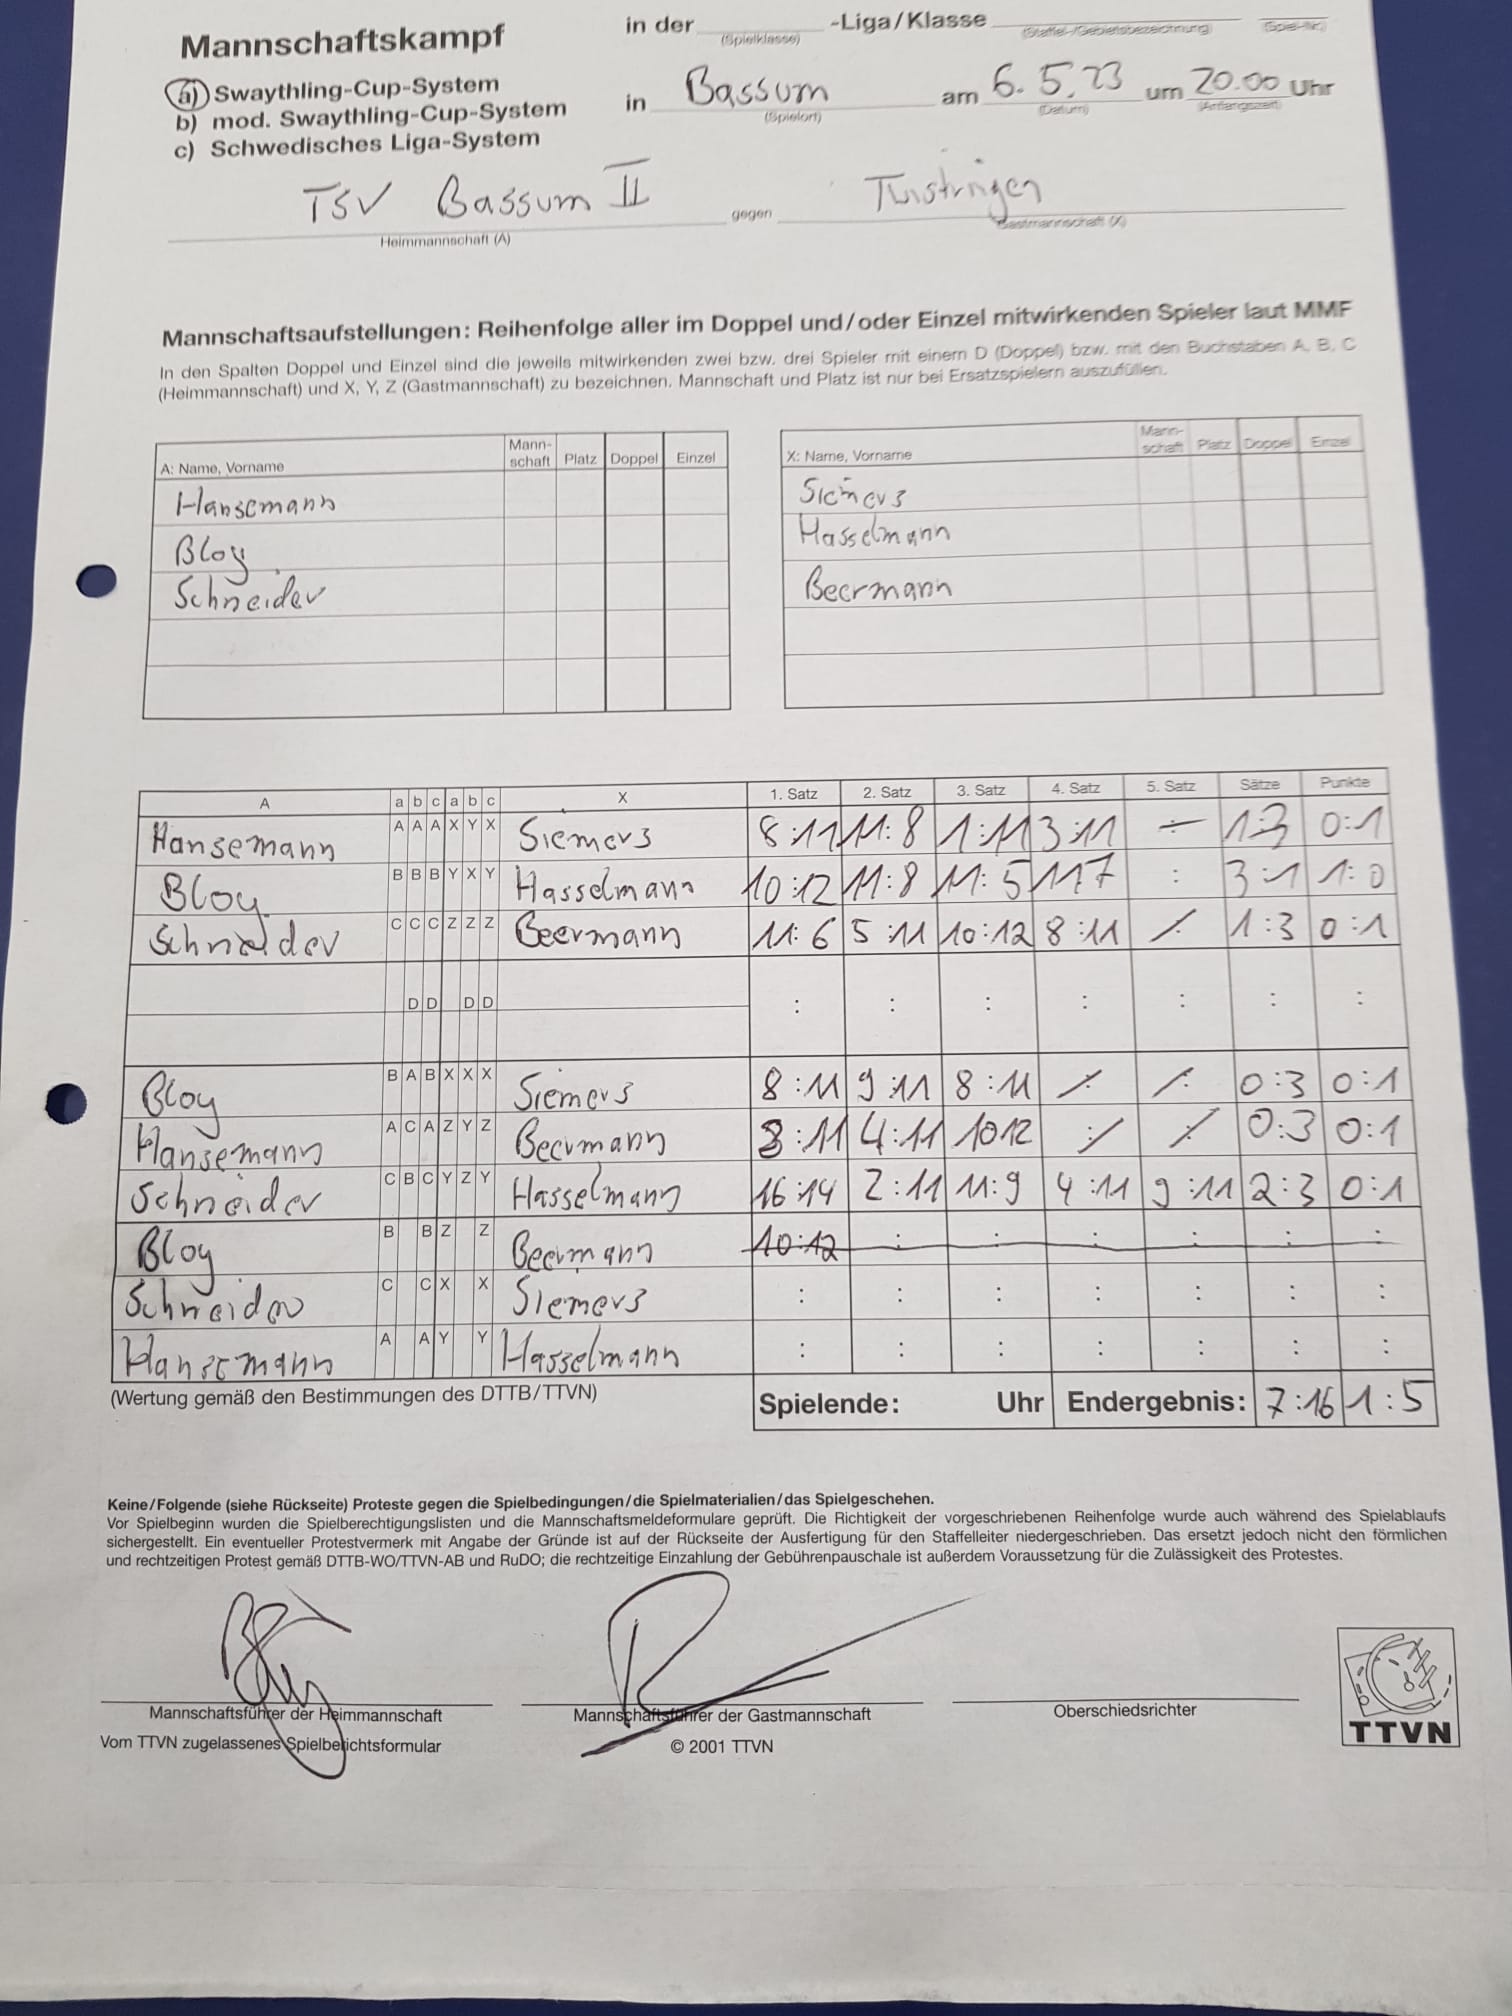 Mannschaftskampf
in der -Liga/Klasse
(Spielklasse) (Staffel-/Gebietsbezeichnung) (Spiel-Nr.)
a) Swaythling-Cup-System
b) mod. Swaythling-Cup-System
c) Schwedisches Liga-System
in Bassum am 6.5.23 um 20.00 Uhr
(Spielort) (Datum) (Anfangszeit)
TSV Bassum II gegen Twistringen
Heimmannschaft (A) Gastmannschaft (X)
Mannschaftsaufstellungen: Reihenfolge aller im Doppel und/oder Einzel mitwirkenden Spieler laut MMF
In den Spalten Doppel und Einzel sind die jeweils mitwirkenden zwei bzw. drei Spieler mit einem D (Doppel) bzw. mit den Buchstaben A, B, C
(Heimmannschaft) und X, Y, Z (Gastmannschaft) zu bezeichnen. Mannschaft und Platz ist nur bei Ersatzspielern auszufüllen.
A: Name, Vorname Mann-schaft Platz Doppel Einzel
Hansemann
Bloy
Schneider
X: Name, Vorname Mann-schaft Platz Doppel Einzel
Siemers
Hasselmann
Beermann
A a b c a b c X 1. Satz 2. Satz 3. Satz 4. Satz 5. Satz Sätze Punkte
Hansemann A A A X Y X Siemers 8:11 11:8 1:11 3:11 1:3 0:1
Bloy B B B Y X Y Hasselmann 10:12 11:8 11:5 11 7 : 3:1 1:0
Schneider C C C Z Z Z Beermann 11:6 5:11 10:12 8:11 1:3 0:1
D D D D : : : : : : :
Bloy B A B X X X Siemers 8:11 9:11 8:11 0:3 0:1
Hansemann A C A Z Y Z Beermann 8:11 4:11 10 12 0:3 0:1
Schneider C B C Y Z Y Hasselmann 16:14 2:11 11:9 4:11 9:11 2:3 0:1
Bloy B B Z Z Beermann 10:12 : : : : : :
Schneider C C X X Siemers : : : : : : :
Hansemann A A Y Y Hasselmann : : : : : : :
(Wertung gemäß den Bestimmungen des DTTB/TTVN)
Spielende: Uhr Endergebnis: 7:16 1:5
Keine/Folgende (siehe Rückseite) Proteste gegen die Spielbedingungen/die Spielmaterialien/das Spielgeschehen.
Vor Spielbeginn wurden die Spielberechtigungslisten und die Mannschaftsmeldeformulare geprüft. Die Richtigkeit der vorgeschriebenen Reihenfolge wurde auch während des Spielablaufs
sichergestellt. Ein eventueller Protestvermerk mit Angabe der Gründe ist auf der Rückseite der Ausfertigung für den Staffelleiter niedergeschrieben. Das ersetzt jedoch nicht den förmlichen
und rechtzeitigen Protest gemäß DTTB-WO/TTVN-AB und RuDO; die rechtzeitige Einzahlung der Gebührenpauschale ist außerdem Voraussetzung für die Zulässigkeit des Protestes.
Mannschaftsführer der Heimmannschaft Mannschaftsführer der Gastmannschaft Oberschiedsrichter
Vom TTVN zugelassenes Spielberichtsformular © 2001 TTVN
TTVN